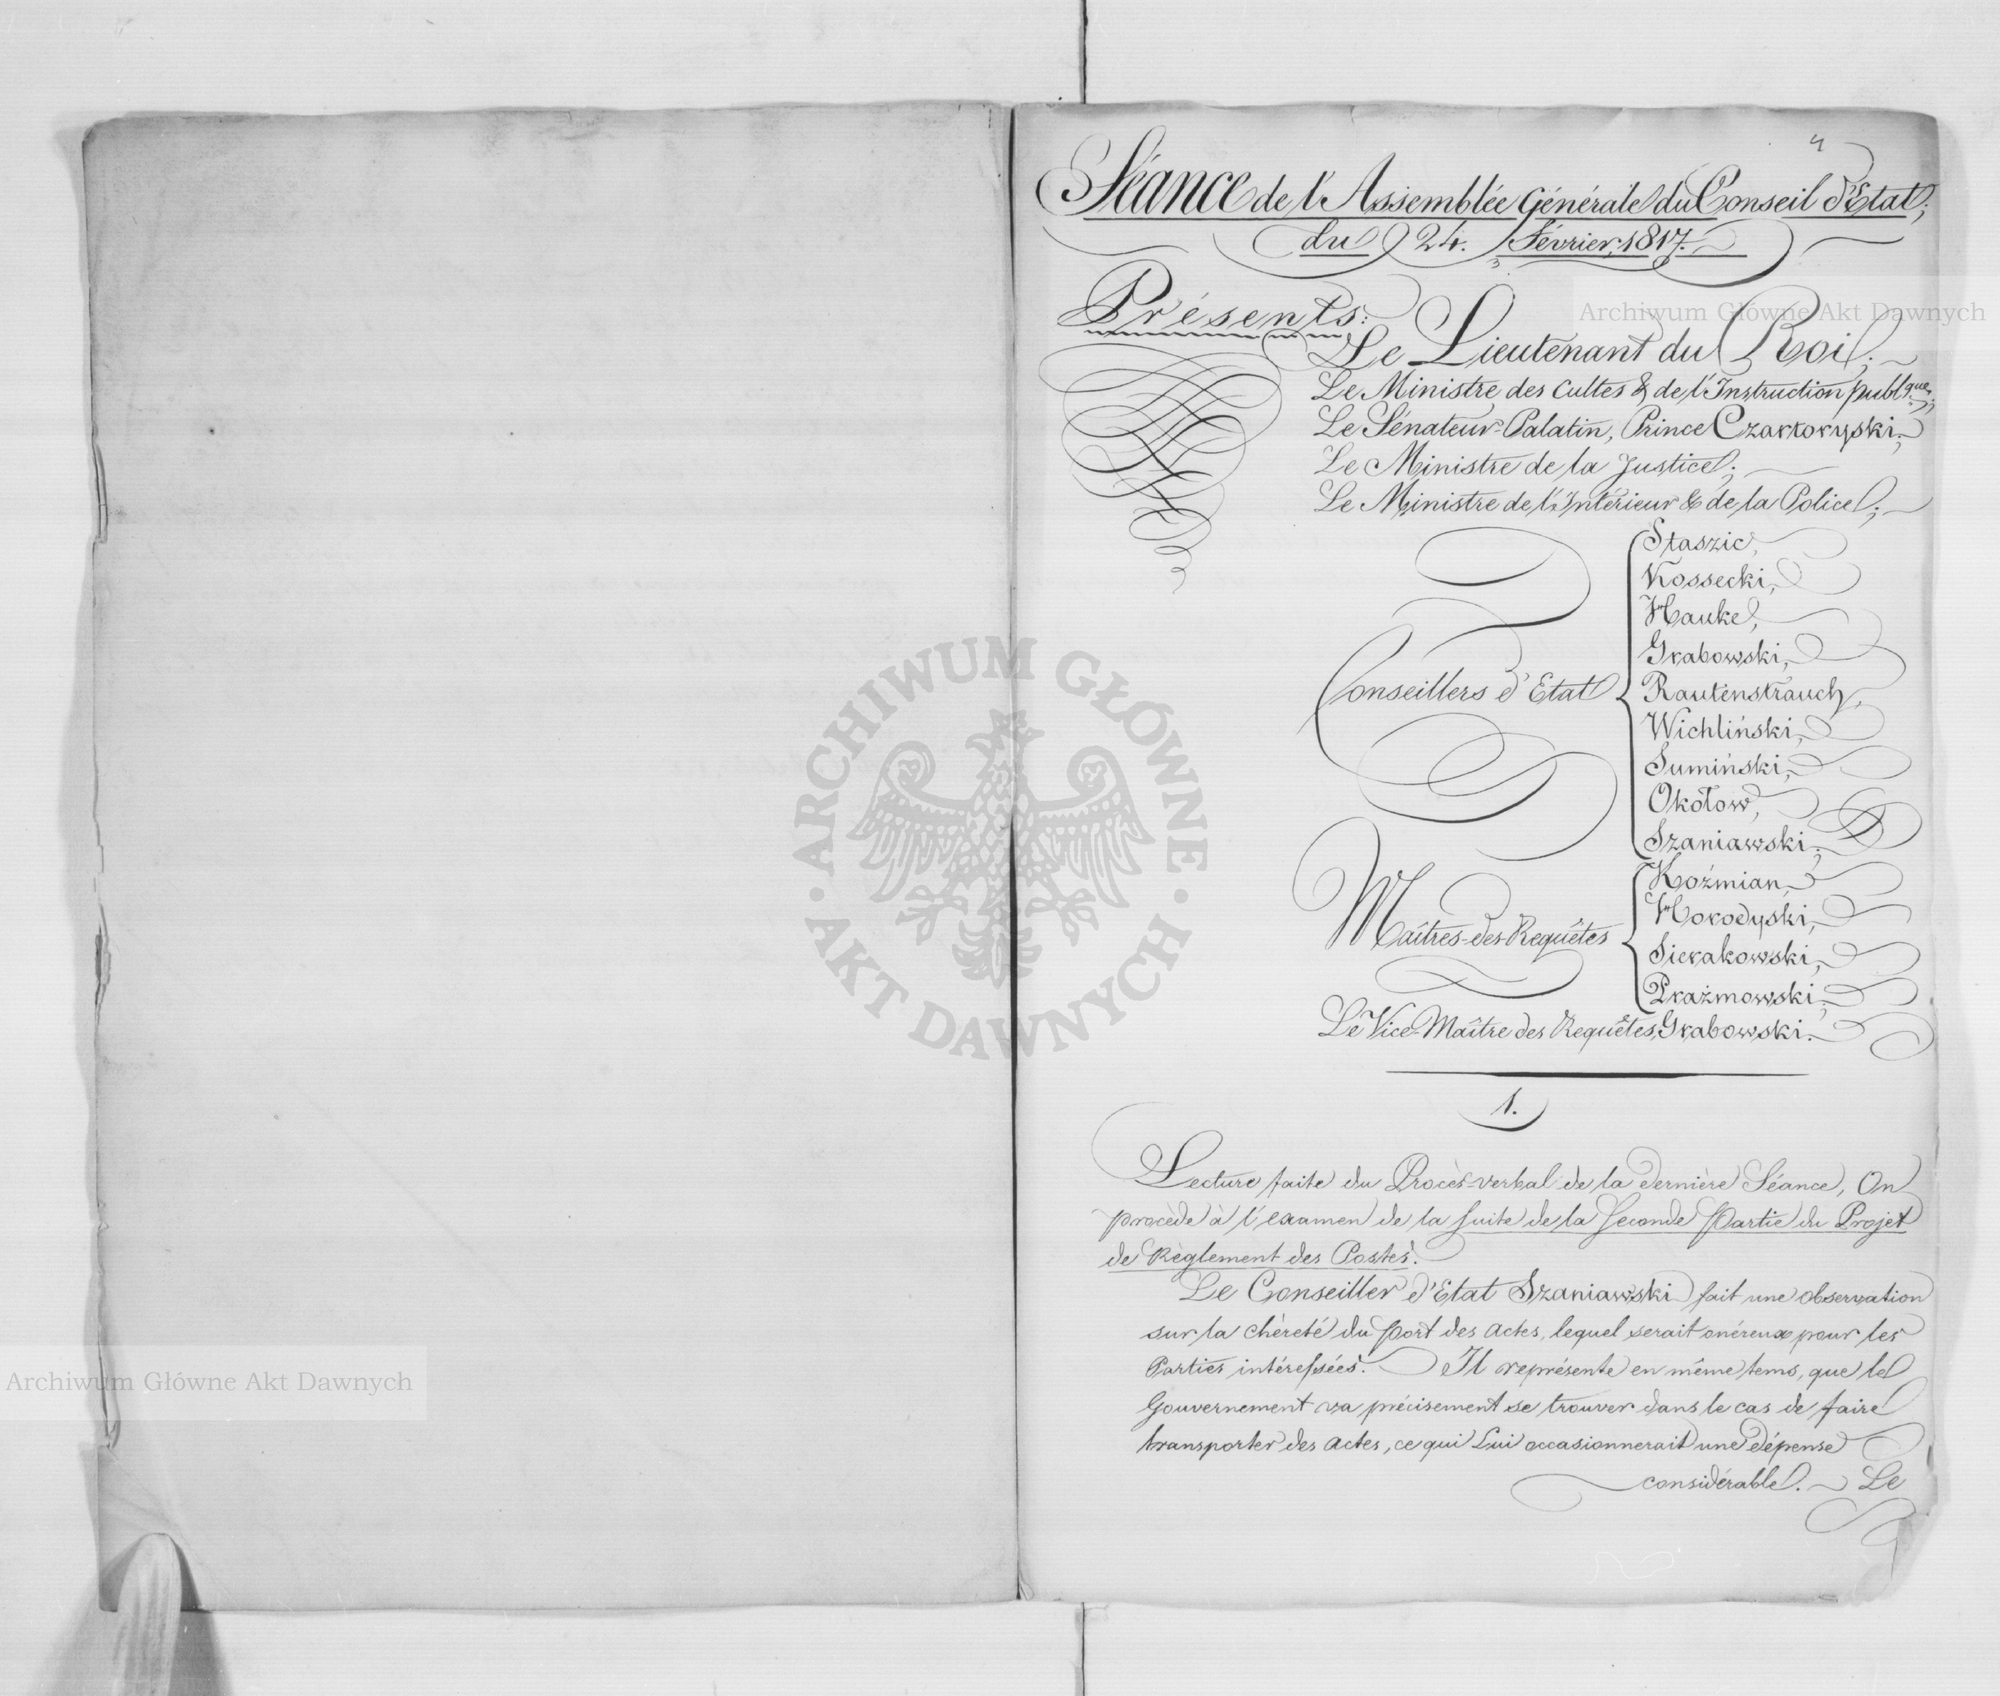 4
Séance de l'Assemblée Générale du Conseil d'Etat;
du 24. Février, 1817.
Présents:
Le Lieutenant du Roi;
Le Ministre des Cultes & de l'Instruction publque.;
Le Sénateur-Palatin, Prince Czartoryski;
Le Ministre de la Justice;
Le Ministre de l'Intérieur & de la Police;
Conseillers d'Etat
Staszic,
Kossecki,
Hauke,
Grabowski,
Rautenstrauch,
Wichliński,
Sumiński,
Okołow,
Szaniawski;
Maîtres-des-Requêtes
Koźmian,
Horodyski,
Sierakowski,
Prażmowski;
Le Vice-Maître des Requêtes, Grabowski.
1.
Lecture faite du Procès-verbal de la dernière Séance, On
procède à l'examen de la suite de la seconde Partie du Projet
de Règlement des Postes.
Le Conseiller d'Etat Szaniawski fait une observation
sur la chèreté du port des actes, lequel serait onéreux pour les
Parties intéressées. Il représente en même tems, que le
Gouvernement va précisement se trouver dans le cas de faire
transporter des actes, ce qui Lui occasionnerait une dépense
considérable. Le
ARCHIWUM GŁÓWNE AKT DAWNYCH
Archiwum Główne Akt Dawnych
Archiwum Główne Akt Dawnych